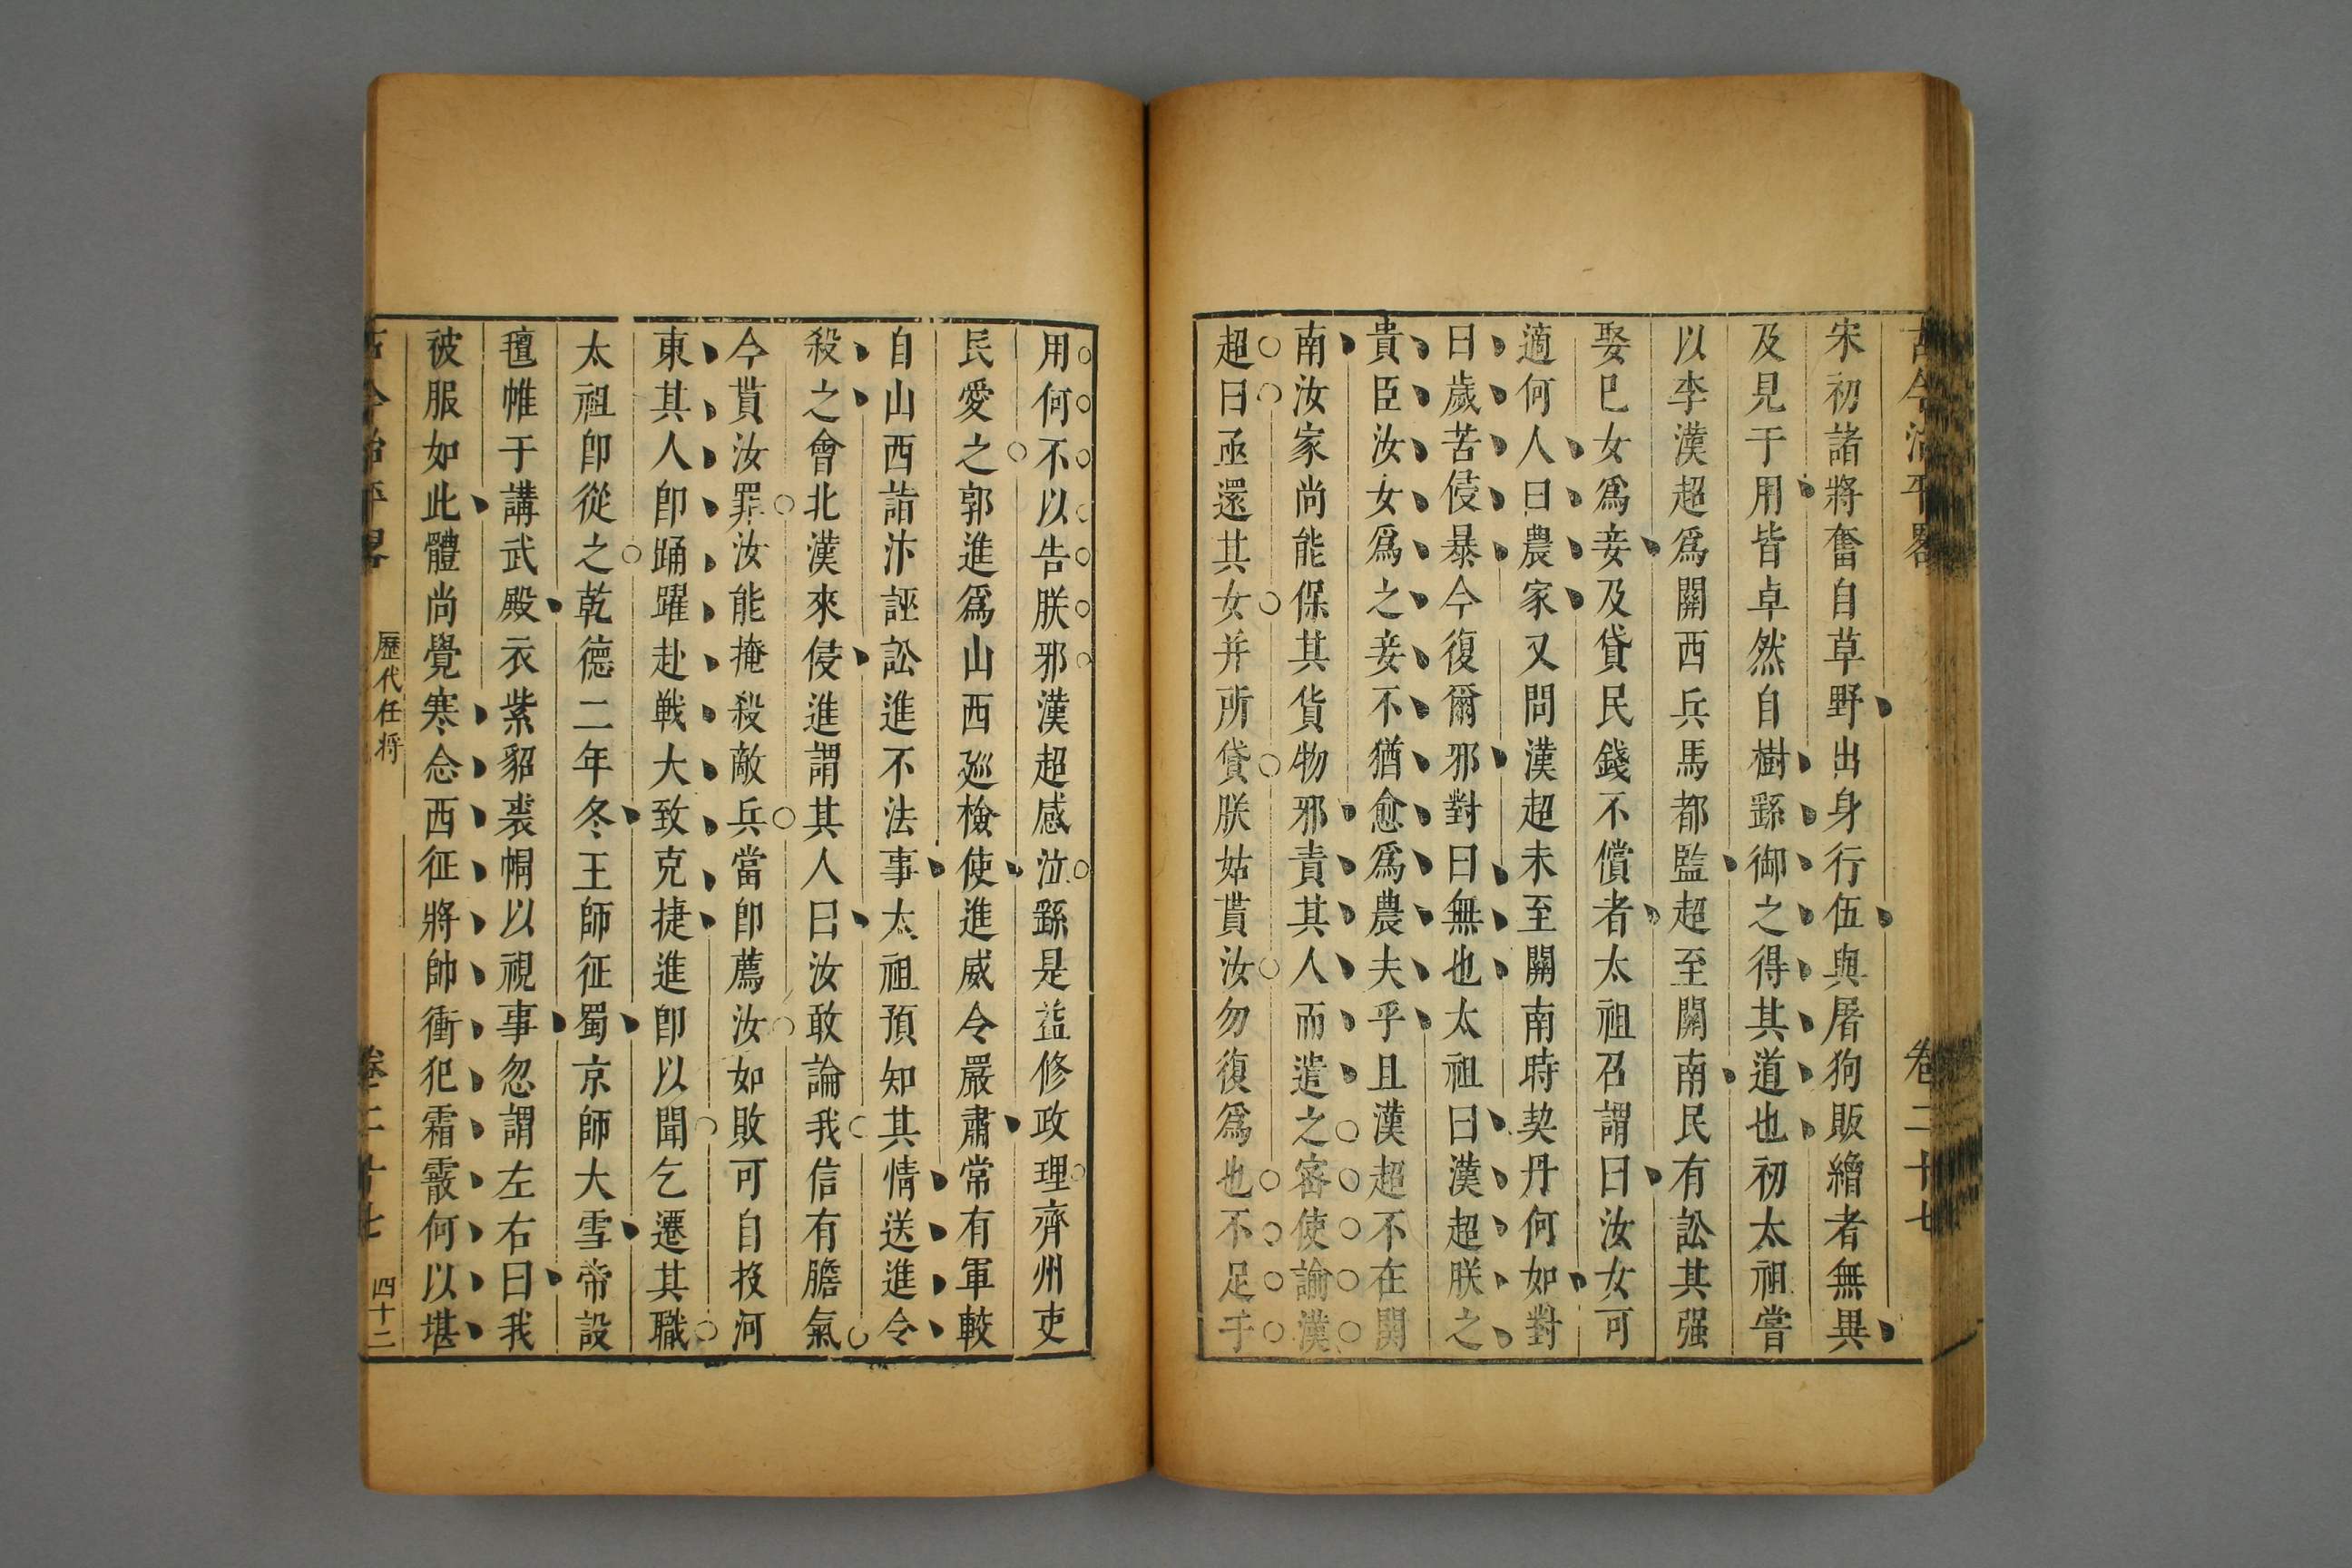 古今治平畧 卷二十七
宋初諸將奮自草野出身行伍與屠狗販繒者無異
及見于用皆卓然自樹繇御之得其道也初太祖嘗
以李漢超爲關西兵馬都監超至關南民有訟其强
娶已女爲妾及貸民錢不償者太祖召謂曰汝女可
適何人曰農家又問漢超未至關南時契丹何如對
曰歲苦侵暴今復爾邪對曰無也太祖曰漢超朕之
貴臣汝女爲之妾不猶愈爲農夫乎且漢超不在關
南汝家尚能保其貨物邪責其人而遣之密使諭漢
超曰亟還其女并所貸朕姑貰汝勿復爲也不足于
用何不以告朕邪漢超感泣繇是益修政理齊州吏
民愛之郭進爲山西廵檢使進威令嚴肅常有軍較
自山西詣汴誣訟進不法事太祖預知其情送進令
殺之會北漢來侵進謂其人曰汝敢論我信有膽氣
今貰汝罪汝能掩殺敵兵當卽薦汝如敗可自投河
東其人卽踊躍赴戰大致克捷進卽以聞乞遷其職
太祖卽從之乾德二年冬王師征蜀京師大雪帝設
氊帷于講武殿衣紫貂裘帽以視事忽謂左右曰我
被服如此體尚覺寒念西征將帥衝犯霜霰何以堪
古今治平畧 歷代任將 卷二十七 四十二